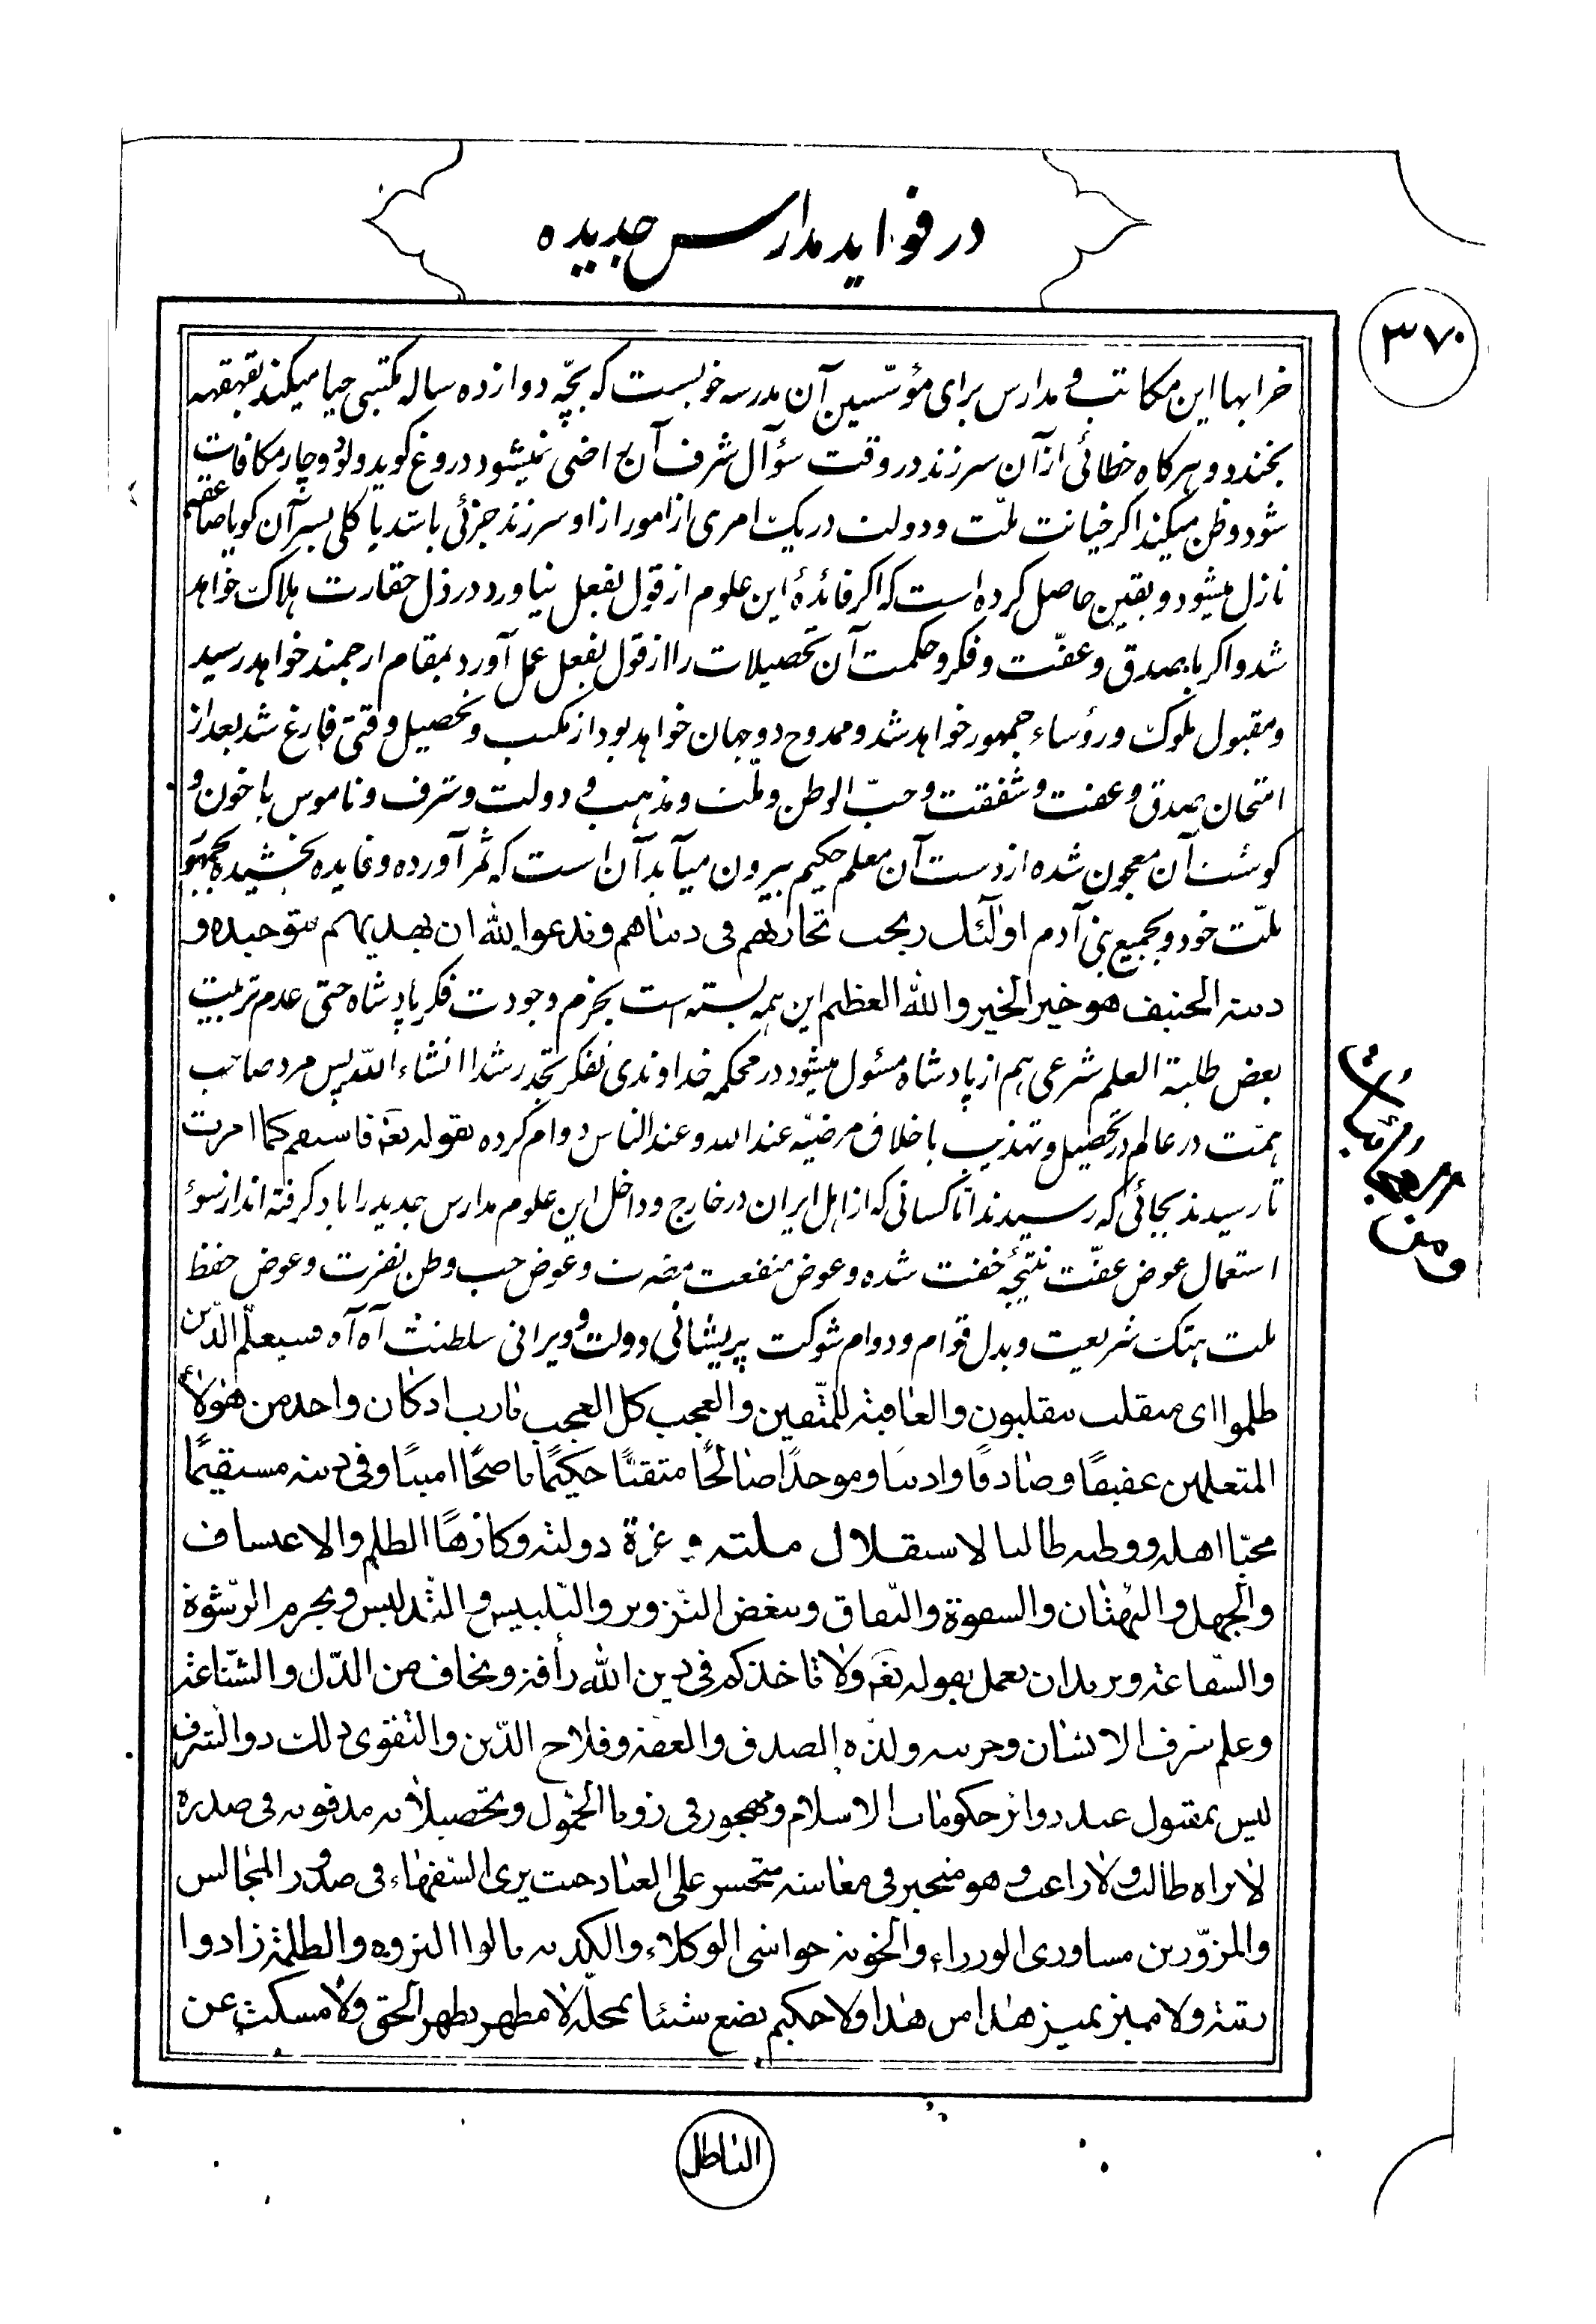 در فواید مدارس جدیده
۳۷۰
خرابها این مکاتب و مدارس برای مؤسّسین آن مدرسه خوبست که بچّه دوازده ساله مکتبی حیا میکند بقهقهه
بخندد و هرکاه خطائی از آن سرزند در وقت سؤآل شرف آن راضی نمیشود دروغ کوید ولو دوچار مکافات
شود و ظن میکند اکر خیانت ملّت و دولت در یک امری از امور از او سرزند جزئی باشد یا کلی بسر آن کویا صاعقه
نازل میشود و یقین حاصل کرده است که اکر فائدهٔ این علوم از قول بفعل نیاورد در ذل حقارت هلاک خواهد
شد و اکر با صدق و عفّت و فکر و حکمت آن تحصیلات را از قول بفعل عمل آورد بمقام ارجمند خواهد رسید
و مقبول ملوک و رؤساء جمهور خواهد شد و ممدوح دو جهان خواهد بود از مکتب و تحصیل وقتی فارغ شد بعد از
امتحان صدق و عفت و شفقت و حبّ الوطن و ملّت و مذهب و دولت و شرف و ناموس با خون و
کوشت آن معجون شده از دست آن معلم حکیم بیرون میآید آن است که ثمر آورده و فایده بخشیده بجمهور
ملّت خود و بجمیع بنی آدم اولٓئک ربحت تجارتهم فی دیناهم وندعوا الله ان یهدیهم بتوحیده و
دینه الحنیف هو خیر الخیر والله العظیم این همه بسته است بخرم وجودت فکر پادشاه حتی عدم تربیت
بعض طلبة العلم شرعی هم از پادشاه مسئول میشود در محکمه خداوندی تفکر تجد رشدا انشاء الله پس مرد صاحب
همّت در عالم در تحصیل و تهذیب باخلاق مرضیّه عند الله و عند الناس دوام کرده بقوله تعٰ فاستقم کما امرت
تا رسیدند بجائی که رسیدند اما کسانی که از اهل ایران در خارج و داخل این علوم مدارس جدید را یاد کرفته اند از سوٴ
استعمال عوض عفّت نتیجهٔ خفت شده و عوض منفعت مضرت و عوض حب وطن نفرت و عوض حفظ
ملت هتک شریعت و بدل قوام و دوام شوکت پریشانی دولت و ویرانی سلطنت آه آه سیعلم الذّین
ظلموا ای منقلب ینقلبون والعاقبة للمتّقین والعجب کل العجب یارب اذ کان واحد من هٰؤلآء
المتعلمین عفیفًا و صادقًا وادیبا وموحدًا صالحًا متقنًا حکیمًا ناصحًا امینًا و فی دینه مستقیمًا
محبّا اهله ووطنه طالبا لاستقلال ملته و عزة دولته وکارهًا الظلم والاعتساف
والجهل والبهتان والسهوة والنّفاق ویبغض التّزویر والتّلبیس والتّدلیس ویحرم الرّشوة
والشّفاعة ویرید ان یعمل بقوله تعٰ ولا تاخذکم فی دین الله رأفة ویخاف من الذّل والشّناعة
وعلم شرف الانسان وحریته ولذة الصدق والعفة وفلاح الدّین والتقوی ذلک ذوالشرف
لیس بمقبول عند دوائر حکومات الاسلام ومهجور فی زوایا الخمول وتحصیلاته مدفونه فی صدره
لا یراه طالب ولا راغب وهو متحیر فی معاشه متحسر علی العباد حیث یری السّفهاء فی صدور المجالس
والمزوّرین مساوری الوزراء والخونة حواشی الوکلاء والکذبه نالوا الثروة والظلمة زادوا
رتبة ولا ممیز یمیز هذا من هذا ولا حکیم یضع شیئا بمحله لا مظهر یظهر الحق ولا مسکت عن
الباطل